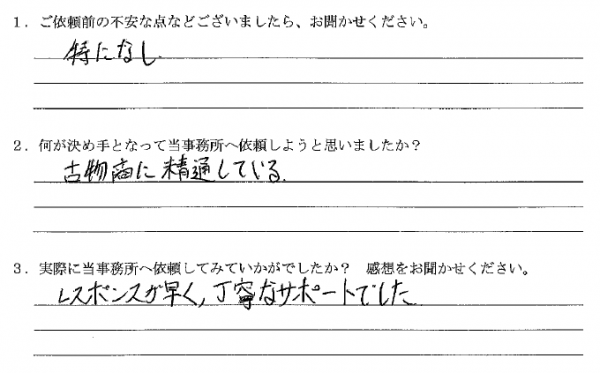 1．ご依頼前の不安な点などございましたら、お聞かせください。
特になし
2．何が決め手となって当事務所へ依頼しようと思いましたか？
古物商に精通している。
3．実際に当事務所へ依頼してみていかがでしたか？　感想をお聞かせください。
レスポンスが早く,丁寧なサポートでした